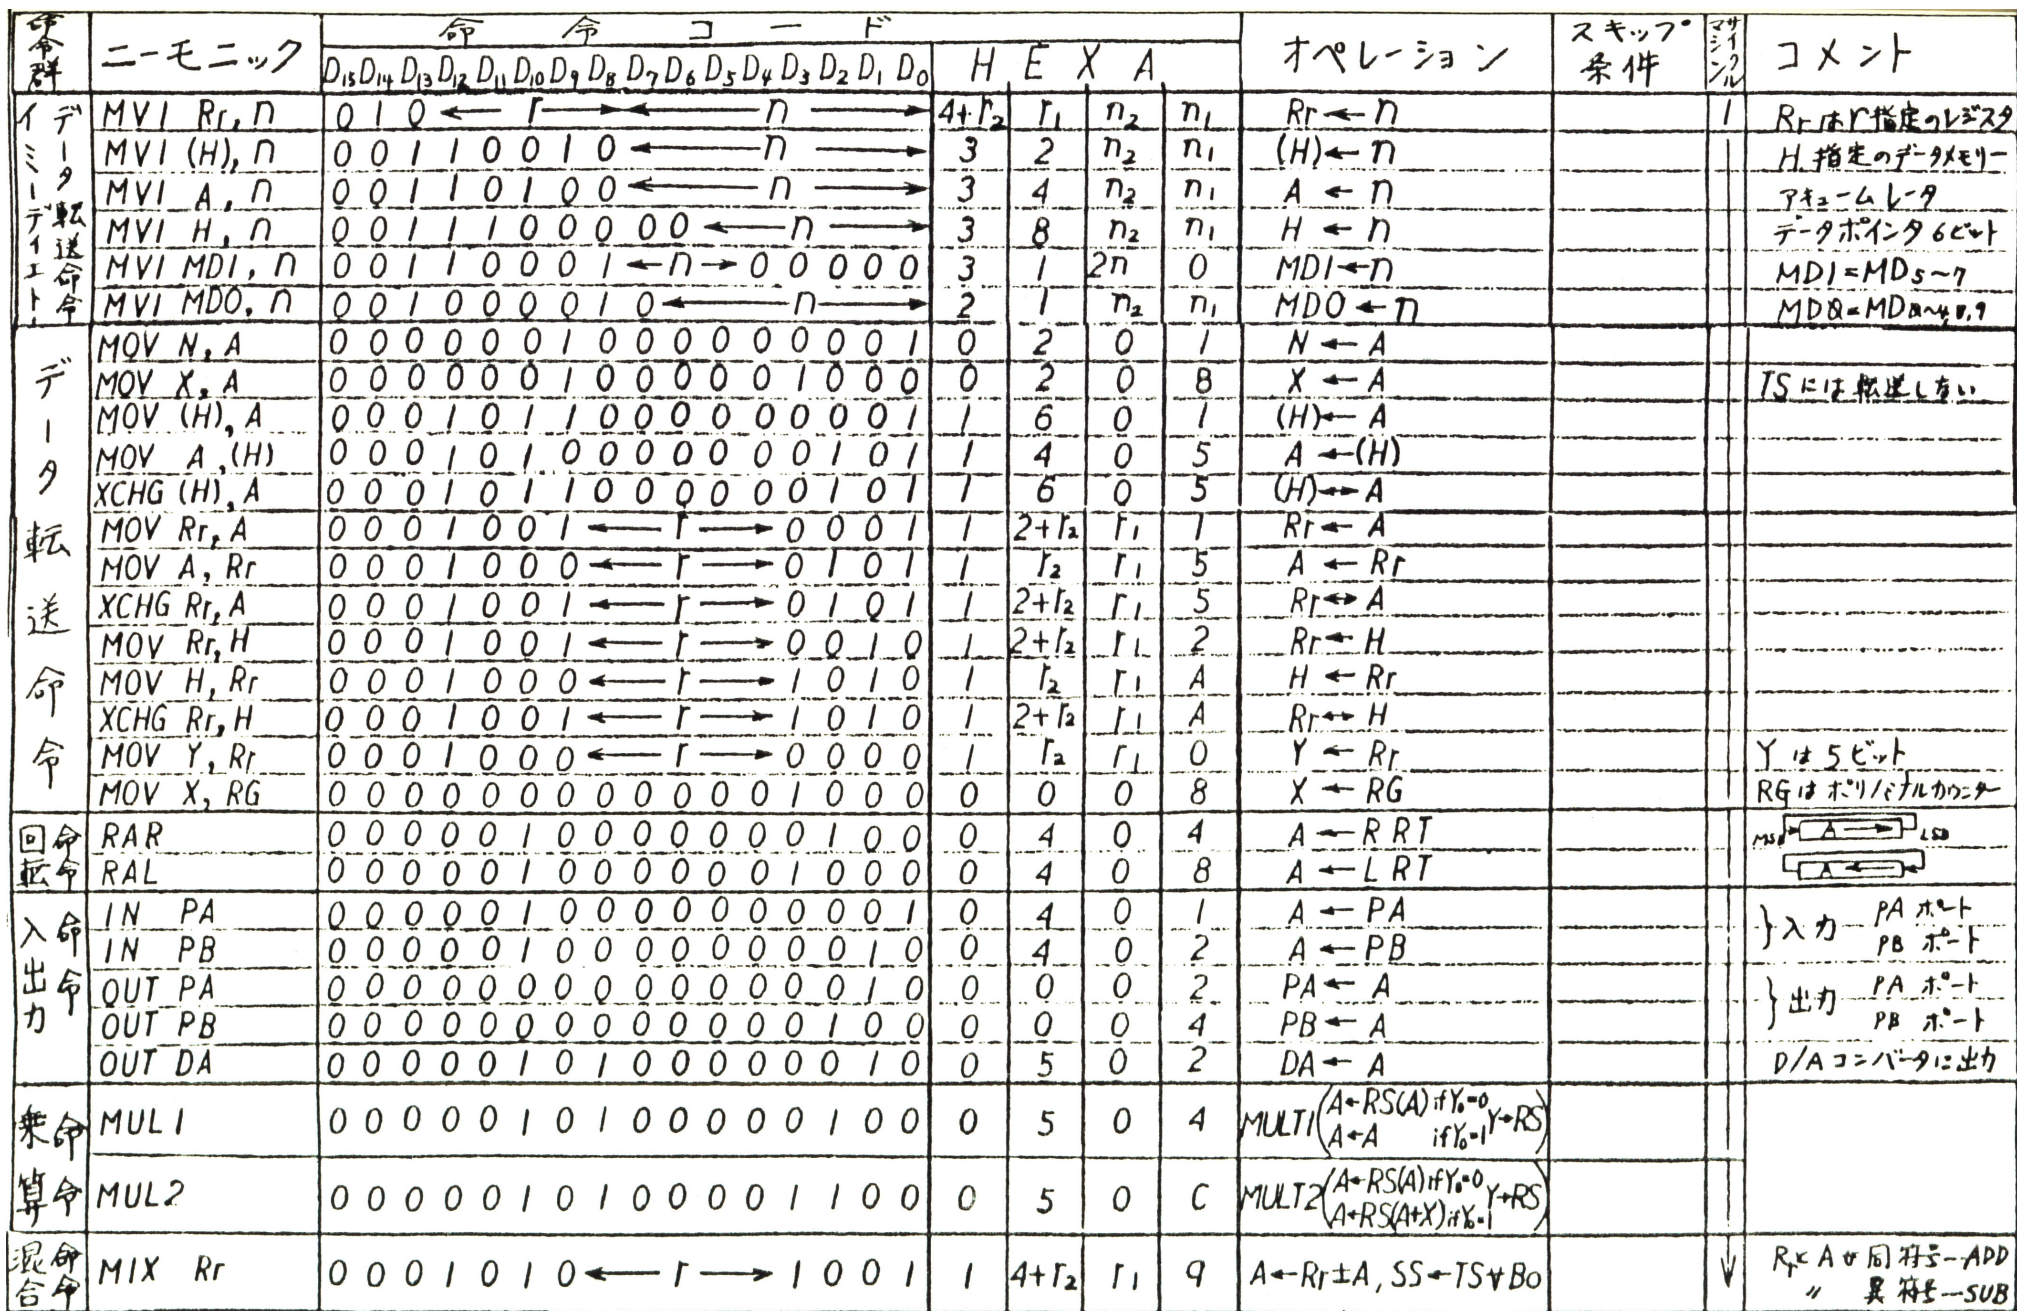 命令群 ニーモニック 命令コード オペレーション スキップ条件 マシンサイクル コメント
D15 D14 D13 D12 D11 D10 D9 D8 D7 D6 D5 D4 D3 D2 D1 D0 HEXA
イミーディエトデータ転送命令
MVI Rr, n 0 1 0 ← r → ← n → 4+r2 r1 n2 n1 Rr ← n 1 Rrはr指定のレジスタ
MVI (H), n 0 0 1 1 0 0 1 0 ← n → 3 2 n2 n1 (H) ← n H.指定のデータメモリー
MVI A, n 0 0 1 1 0 1 0 0 ← n → 3 4 n2 n1 A ← n アキュームレータ
MVI H, n 0 0 1 1 1 0 0 0 0 0 ← n → 3 8 n2 n1 H ← n データポインタ 6ビット
MVI MD1, n 0 0 1 1 0 0 0 1 ← n → 0 0 0 0 0 3 1 2n 0 MD1 ← n MD1=MD5~7
MVI MD0, n 0 0 1 0 0 0 0 1 0 ← n → 2 1 n2 n1 MD0 ← n
データ転送命令
MOV N, A 0 0 0 0 0 0 1 0 0 0 0 0 0 0 0 1 0 2 0 1 N ← A
MOV X, A 0 0 0 0 0 0 1 0 0 0 0 0 1 0 0 0 0 2 0 8 X ← A TSには転送しない
MOV (H), A 0 0 0 1 0 1 1 0 0 0 0 0 0 0 0 1 1 6 0 1 (H) ← A
MOV A, (H) 0 0 0 1 0 1 0 0 0 0 0 0 0 1 0 1 1 4 0 5 A ← (H)
XCHG (H), A 0 0 0 1 0 1 1 0 0 0 0 0 0 1 0 1 1 6 0 5 (H) ↔ A
MOV Rr, A 0 0 0 1 0 0 1 ← r → 0 0 0 1 1 2+r2 r1 1 Rr ← A
MOV A, Rr 0 0 0 1 0 0 0 ← r → 0 1 0 1 1 r2 r1 5 A ← Rr
XCHG Rr, A 0 0 0 1 0 0 1 ← r → 0 1 0 1 1 2+r2 r1 5 Rr ↔ A
MOV Rr, H 0 0 0 1 0 0 1 ← r → 0 0 1 0 1 2+r2 r1 2 Rr ← H
MOV H, Rr 0 0 0 1 0 0 0 ← r → 1 0 1 0 1 r2 r1 A H ← Rr
XCHG Rr, H 0 0 0 1 0 0 1 ← r → 1 0 1 0 1 2+r2 r1 A Rr ↔ H
MOV Y, Rr 0 0 0 1 0 0 0 ← r → 0 0 0 0 1 r2 r1 0 Y ← Rr Yは5ビット
MOV X, RG 0 0 0 0 0 0 0 0 0 0 0 0 1 0 0 0 0 0 0 8 X ← RG RGはポリノミナルカウンター
回転命令
RAR 0 0 0 0 0 1 0 0 0 0 0 0 0 1 0 0 0 4 0 4 A ← RRT MSB A → LSB
RAL 0 0 0 0 0 1 0 0 0 0 0 0 1 0 0 0 0 4 0 8 A ← LRT A ←
入出力命令
IN PA 0 0 0 0 0 1 0 0 0 0 0 0 0 0 0 1 0 4 0 1 A ← PA }入力 PAポート
IN PB 0 0 0 0 0 1 0 0 0 0 0 0 0 0 1 0 0 4 0 2 A ← PB PBポート
OUT PA 0 0 0 0 0 0 0 0 0 0 0 0 0 0 1 0 0 0 0 2 PA ← A }出力 PAポート
OUT PB 0 0 0 0 0 0 0 0 0 0 0 0 0 1 0 0 0 0 0 4 PB ← A PBポート
OUT DA 0 0 0 0 0 1 0 1 0 0 0 0 0 0 1 0 0 5 0 2 DA ← A D/Aコンバータに出力
乗算命令
MUL1 0 0 0 0 0 1 0 1 0 0 0 0 0 1 0 0 0 5 0 4 MULT1(A←RS(A) if Y0=0 A←A if Y0=1 Y→RS)
MUL2 0 0 0 0 0 1 0 1 0 0 0 0 1 1 0 0 0 5 0 C MULT2(A←RS(A) if Y0=0 A←RS(A+X) if Y0=1 Y→RS)
混合命令
MIX Rr 0 0 0 1 0 1 0 ← r → 1 0 0 1 1 4+r2 r1 9 A←Rr±A, SS←TS∀B0 RrとAが同符号―ADD
〃 異符号―SUB